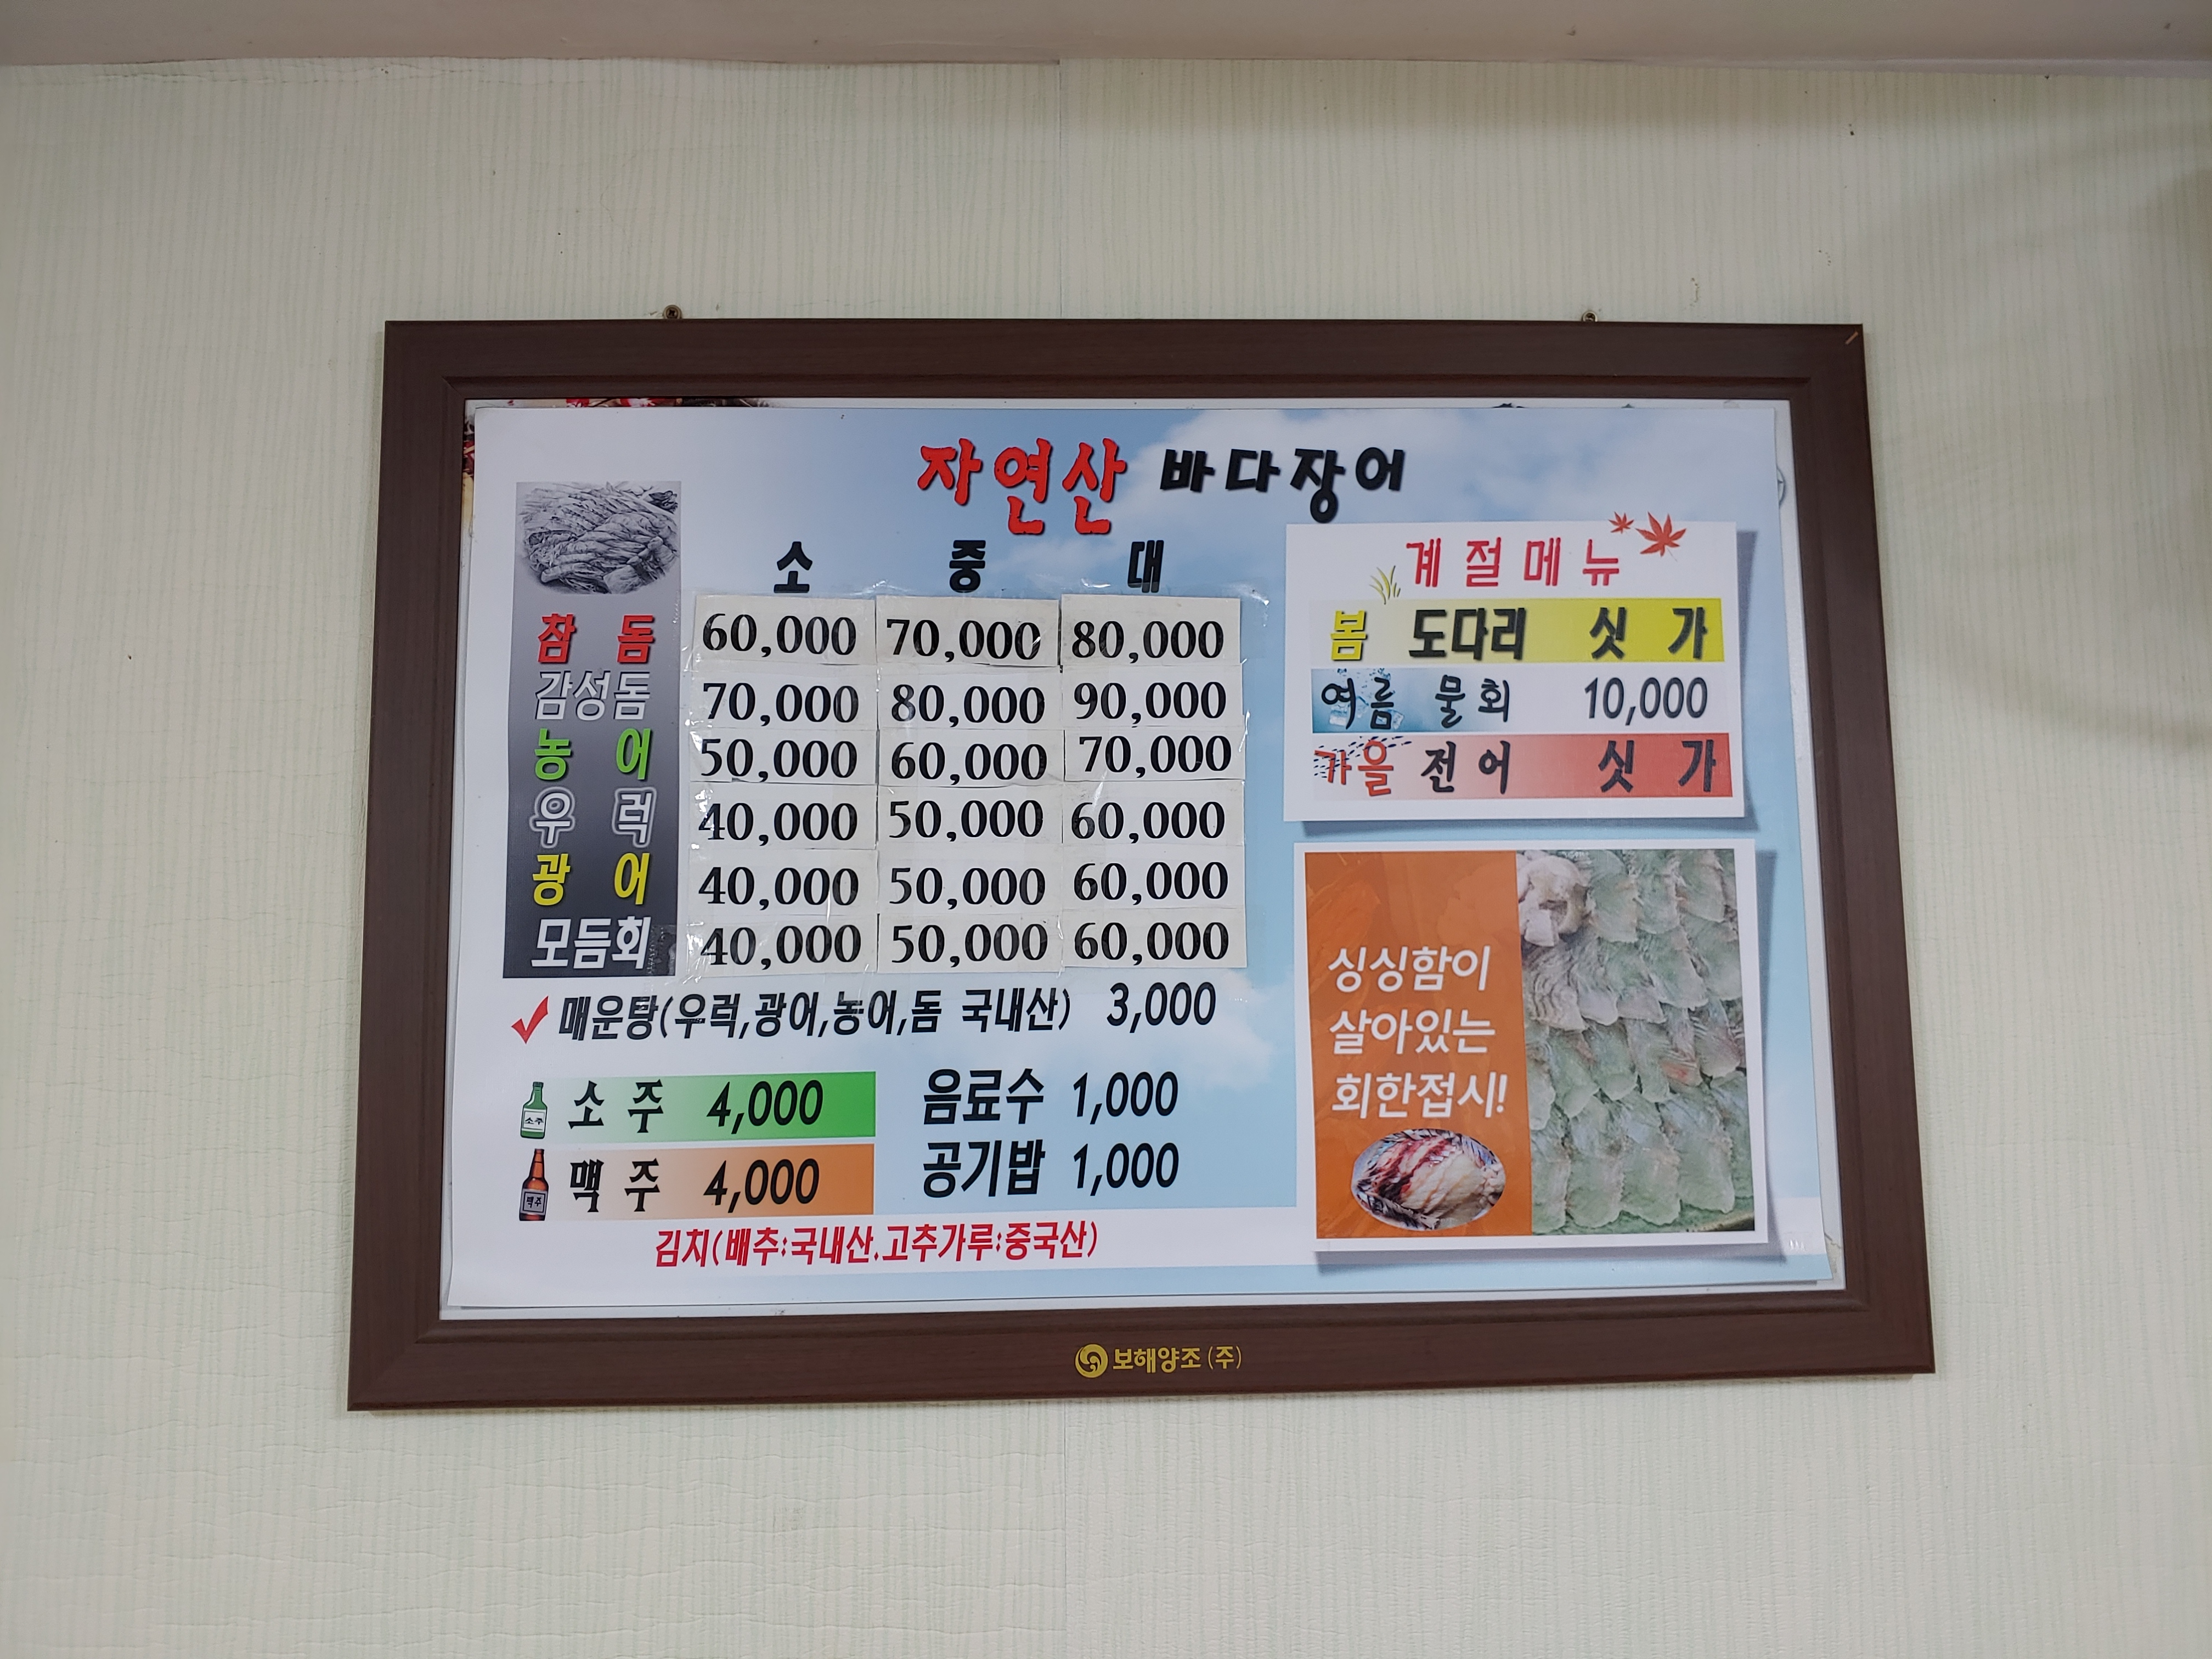 자연산 바다장어
소 중 대
참돔 60,000 70,000 80,000
감성돔 70,000 80,000 90,000
농어 50,000 60,000 70,000
우럭 40,000 50,000 60,000
광어 40,000 50,000 60,000
모듬회 40,000 50,000 60,000
매운탕(우럭,광어,농어,돔 국내산) 3,000
소주
소주 4,000
맥주
맥주 4,000
음료수 1,000
공기밥 1,000
김치(배추:국내산.고추가루:중국산)
계절메뉴
봄 도다리 싯가
여름 물회 10,000
가을 전어 싯가
싱싱함이
살아있는
회한접시!
보해양조(주)